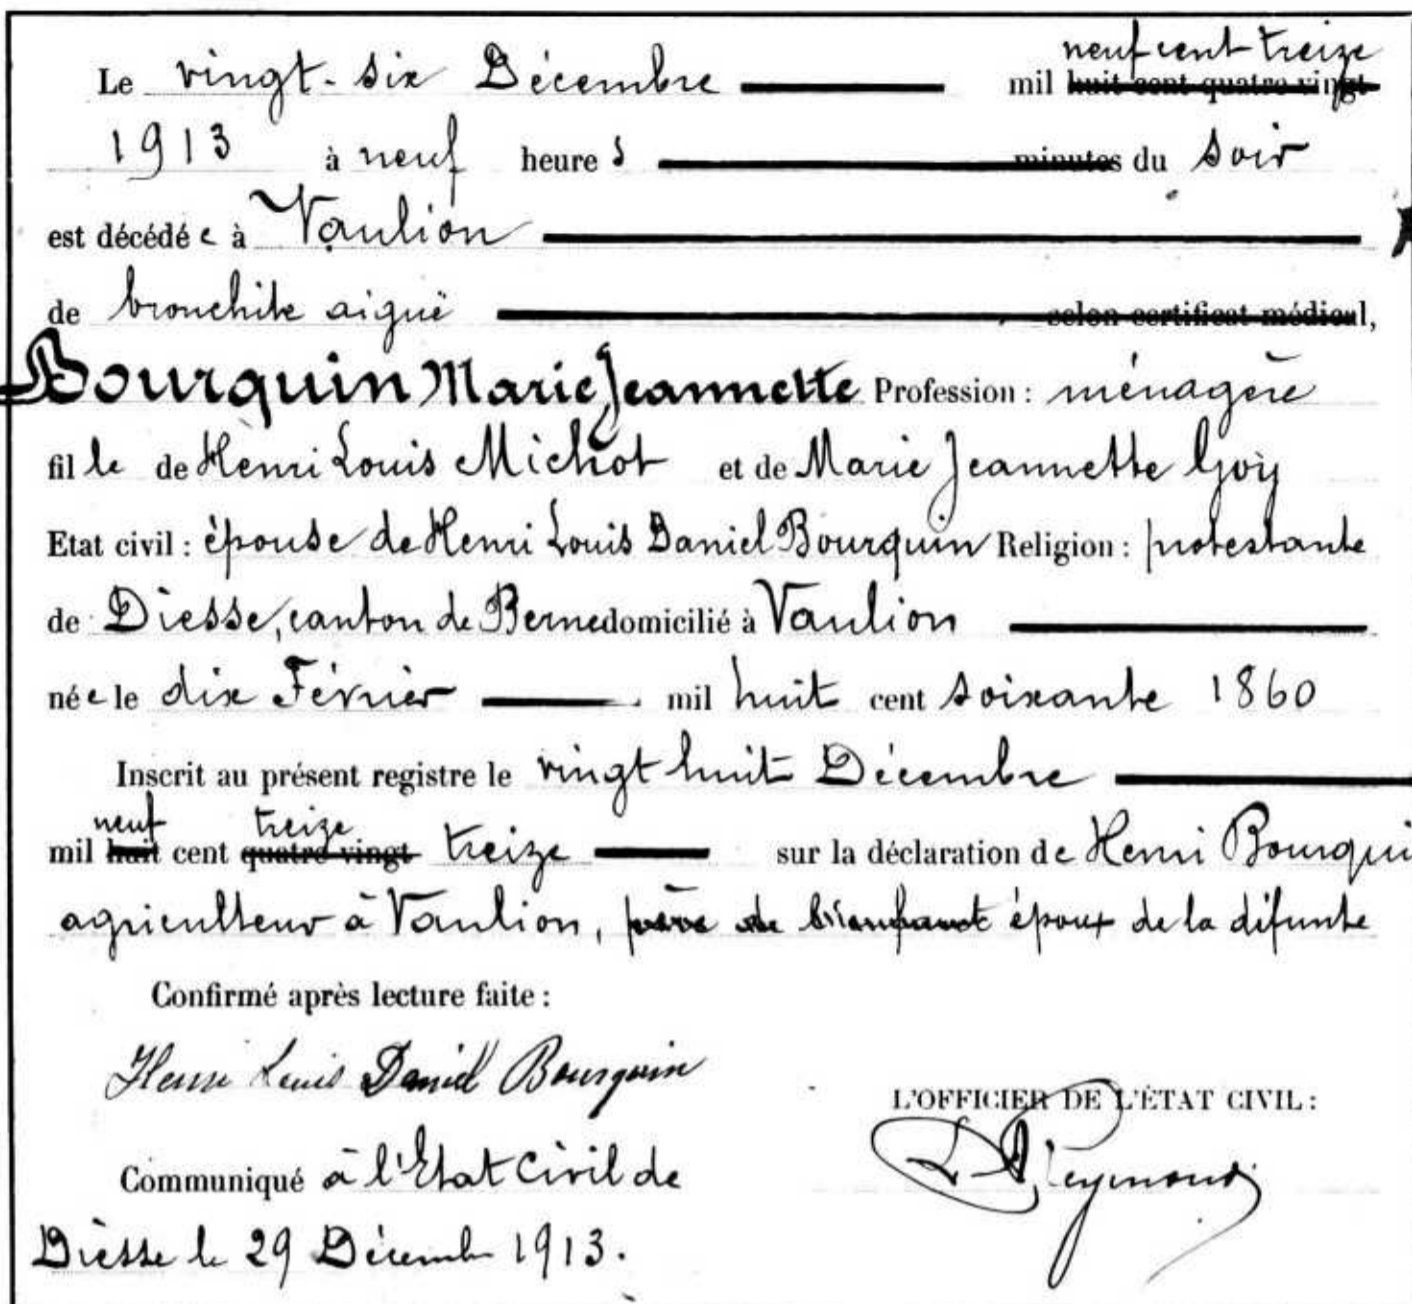 neuf cent treize
Le vingt-six Décembre mil huit cent quatre vingt
1913 à neuf heures minutes du soir
est décédée à Vaulion
de bronchite aiguë selon certificat médical,
Bourquin Marie Jeannette Profession : ménagère
fille de Henri Louis Michot et de Marie Jeannette Goy
Etat civil : épouse de Henri Louis Daniel Bourquin Religion : protestante
de Diesse, canton de Berne domicilié à Vaulion
née le dix Février mil huit cent soixante 1860
Inscrit au présent registre le vingt huit Décembre
neuf treize
mil huit cent quatre vingt treize sur la déclaration de Henri Bourqui
agriculteur à Vaulion, père de époux de la défunte
Confirmé après lecture faite :
Henri Louis Daniel Bourquin
L'OFFICIER DE L'ÉTAT CIVIL :
Communiqué à l'Etat Civil de
Diesse le 29 Décemb 1913.